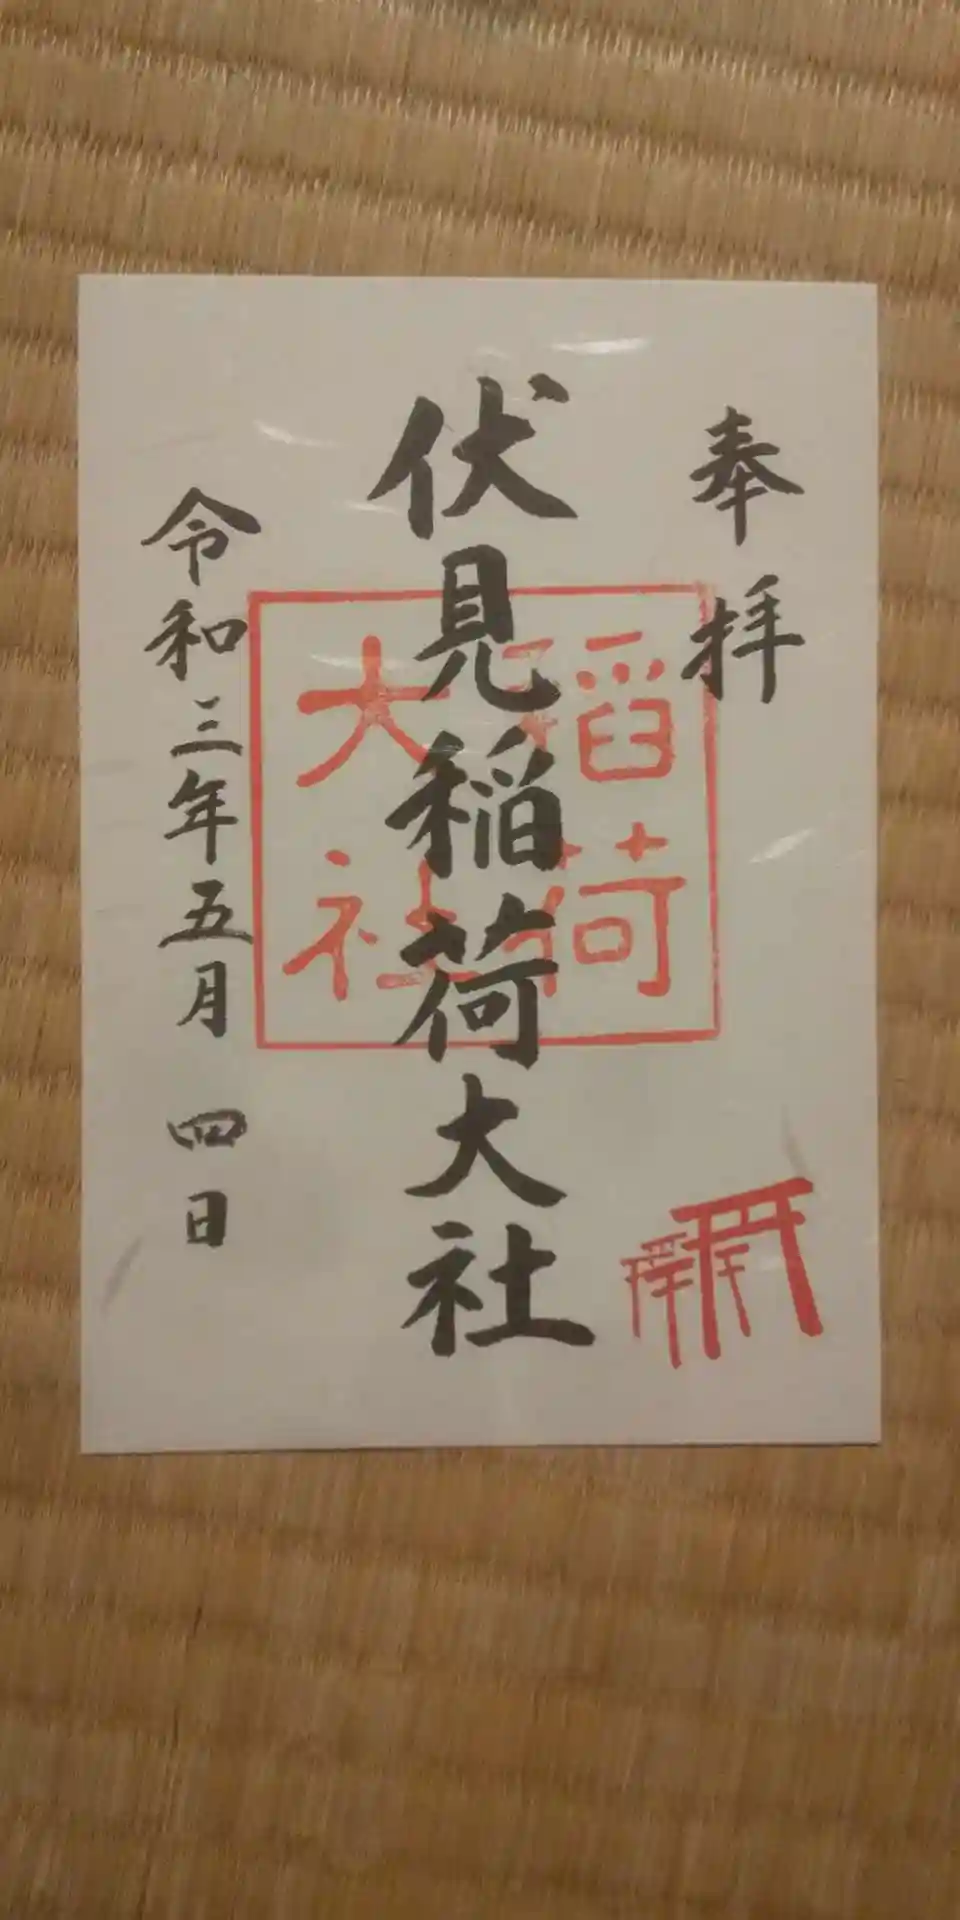 奉拝
伏見稲荷大社
稲荷
大社
令和三年五月 四日